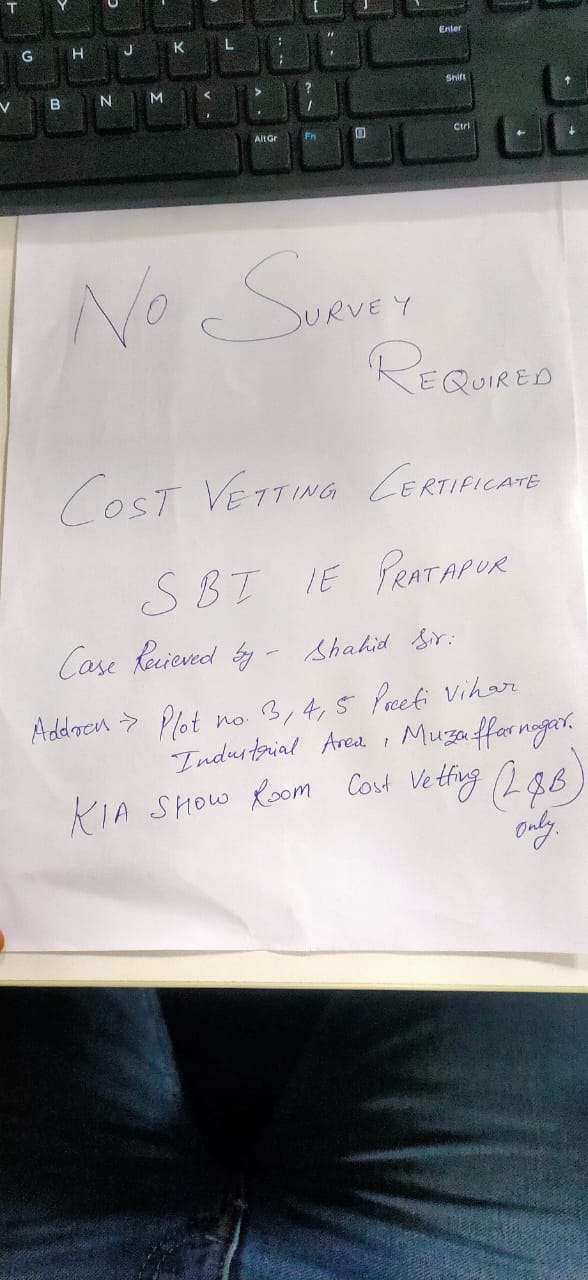 T Y U [
G H J K L : ; " ' Enter
V B N M < , > . ? / Shift ↑
AltGr Fn Ctrl ← ↓
No SURVEY
REQUIRED
COST VETTING CERTIFICATE
SBI IE PRATAPUR
Case Recieved by - Shahid Sir:
Address → Plot no. 3, 4, 5 Preeti Vihar
Industrial Area, Muzaffarnagar.
KIA SHOW Room Cost Vetting (L&B)
only.